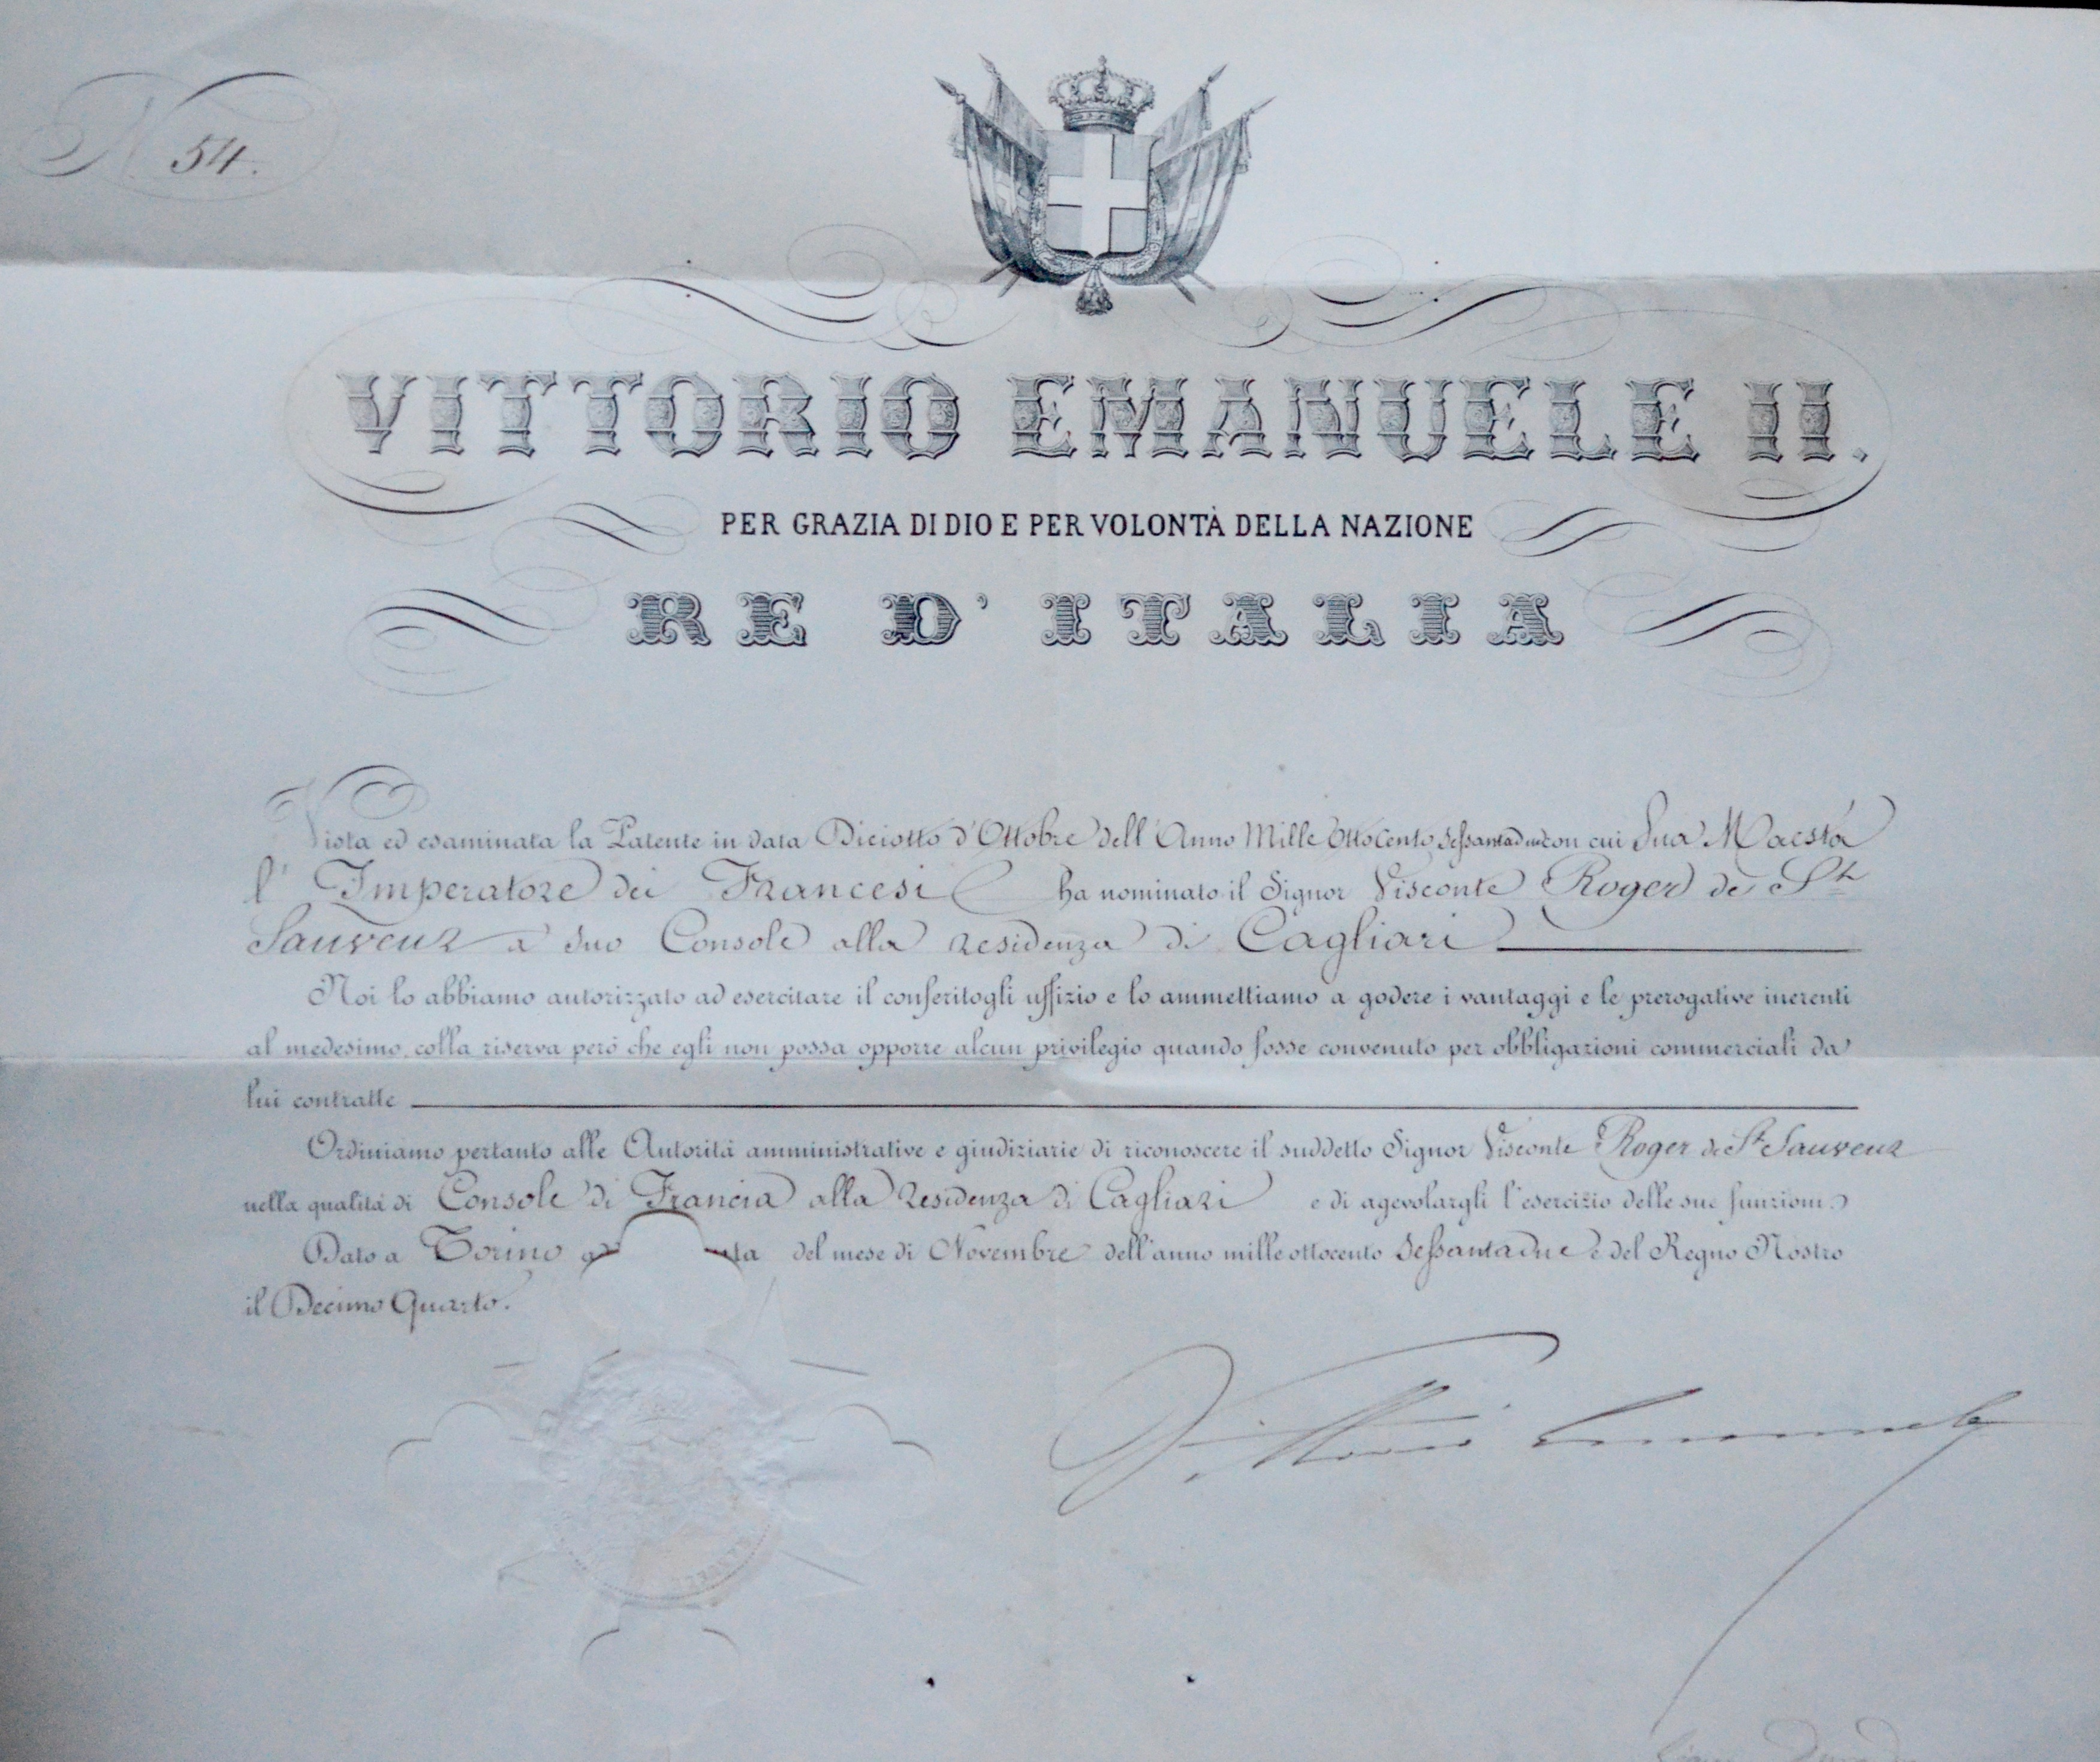 N 54.
VITTORIO EMANUELE II.
PER GRAZIA DI DIO E PER VOLONTÀ DELLA NAZIONE
RE D'ITALIA
Vista ed esaminata la Patente in data Diciotto d'Ottobre dell'Anno Mille Ottocento Sessantadue con cui Sua Maestà
l'Imperatore dei Francesi ha nominato il Signor Visconte Roger de St
Sauveur a suo Console alla residenza di Cagliari
Noi lo abbiamo autorizzato ad esercitare il conferitogli uffizio e lo ammettiamo a godere i vantaggi e le prerogative inerenti
al medesimo, colla riserva però che egli non possa opporre alcun privilegio quando fosse convenuto per obbligazioni commerciali da
lui contratte
Ordiniamo pertanto alle Autorità amministrative e giudiziarie di riconoscere il suddetto Signor Visconte Roger de St Sauveur
nella qualità di Console di Francia alla Residenza di Cagliari e di agevolargli l'esercizio delle sue funzioni.
Dato a Torino ta del mese di Novembre dell'anno mille ottocento Sessantadue e del Regno Nostro
il Decimo Quarto.
Vittorio Emanuele